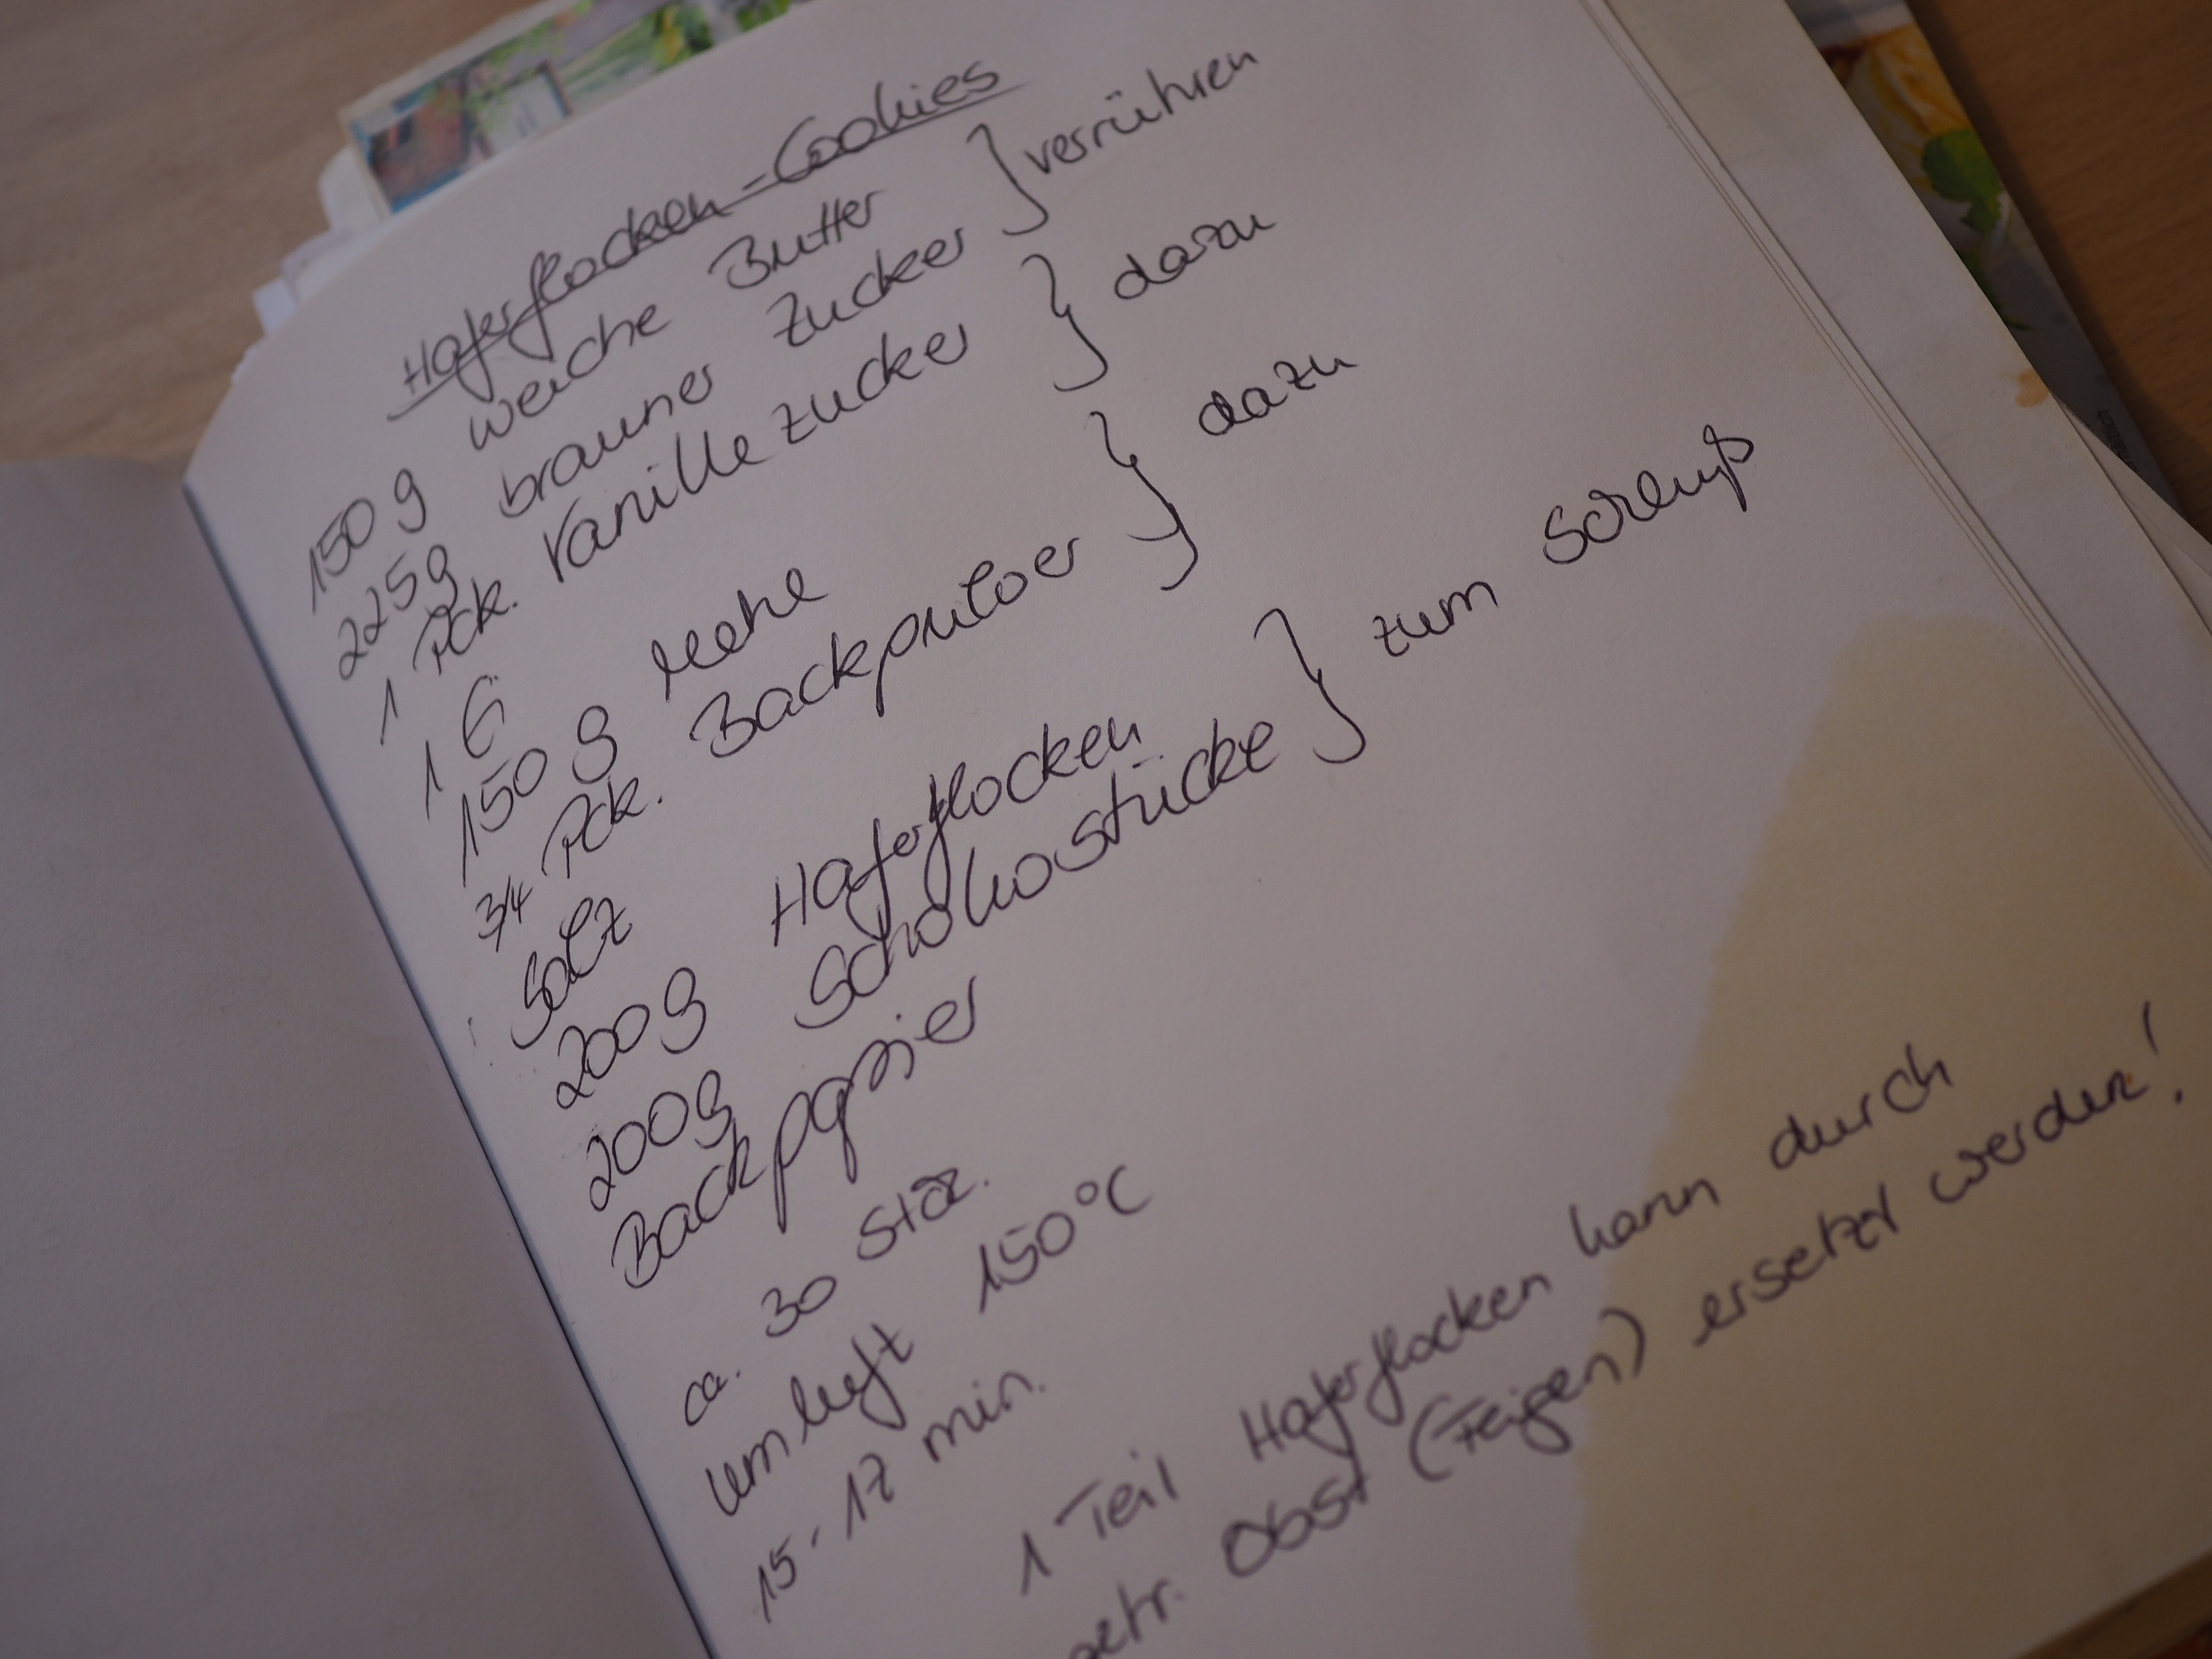 Haferflocken-Cookies
150 g weiche Butter } verrühren
225g brauner Zucker
1 Pck. Vanillezucker } dazu
1 Ei
150 g Mehl } dazu
3/4 Pck. Backpulver
Salz
200g Haferflocken } zum Schluß
200g Schokostücke
Backpapier
ca. 30 Stck.
Umluft 150°C
15-17 min.
1 Teil Haferflocken kann durch
getr. Obst (Feigen) ersetzt werden!